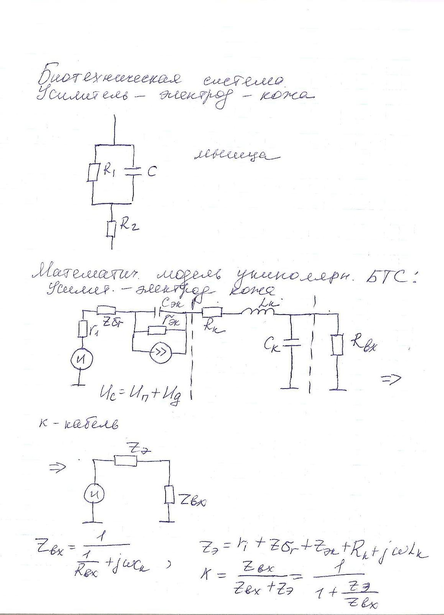 Биотехническая система
Усилитель – электрод – кожа
мышца
R1
C
R2
Математич. модель униполярн. БТС:
Усилит. – электрод кожа
r1
Zбт
Cэк
rэк
Rк
Lк
Cк
Rвх
И
Uс = Uп + Uд
⇒
к - кабель
⇒
Zэ
И
Zвх
Zвх = 1 / (1/Rвх + jωcк) ;
Zэ = r1 + Zбт + Zэк + Rк + jωLк
K = Zвх / (Zвх + Zэ) = 1 / (1 + Zэ/Zвх)